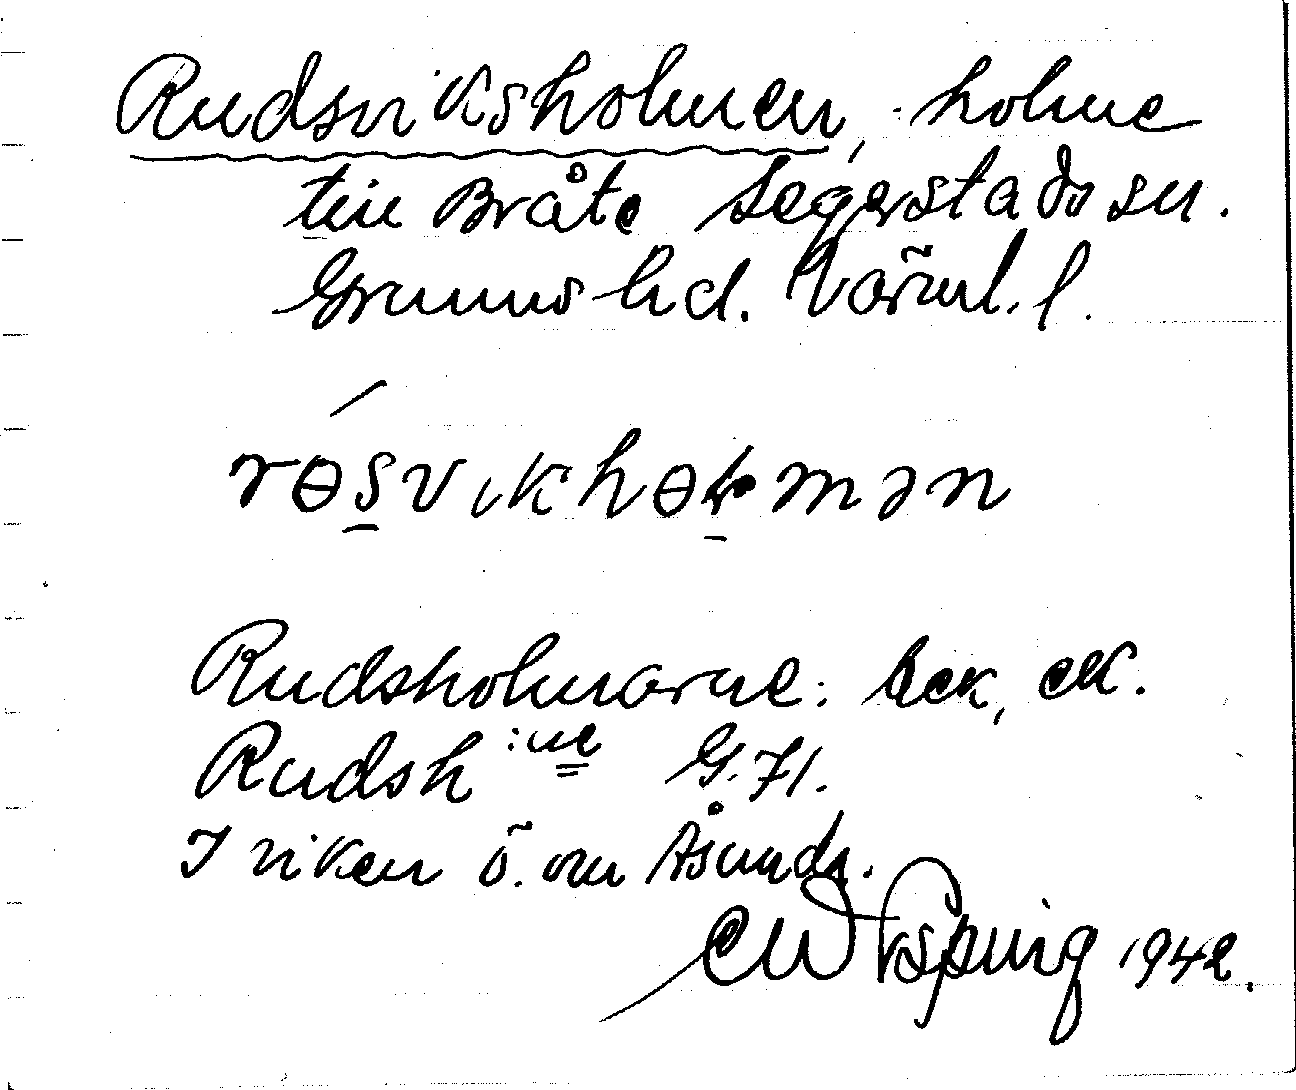 Rudsviksholmen, holme
till Bråte Segerstads sn.
Grums hd. Värml. l.
rɵs̱vɩkhɵḻmən
Rudsholmarne: Eck, ek.
Rudsh:ne G.71.
I viken ö. om Åsunda.
1942.